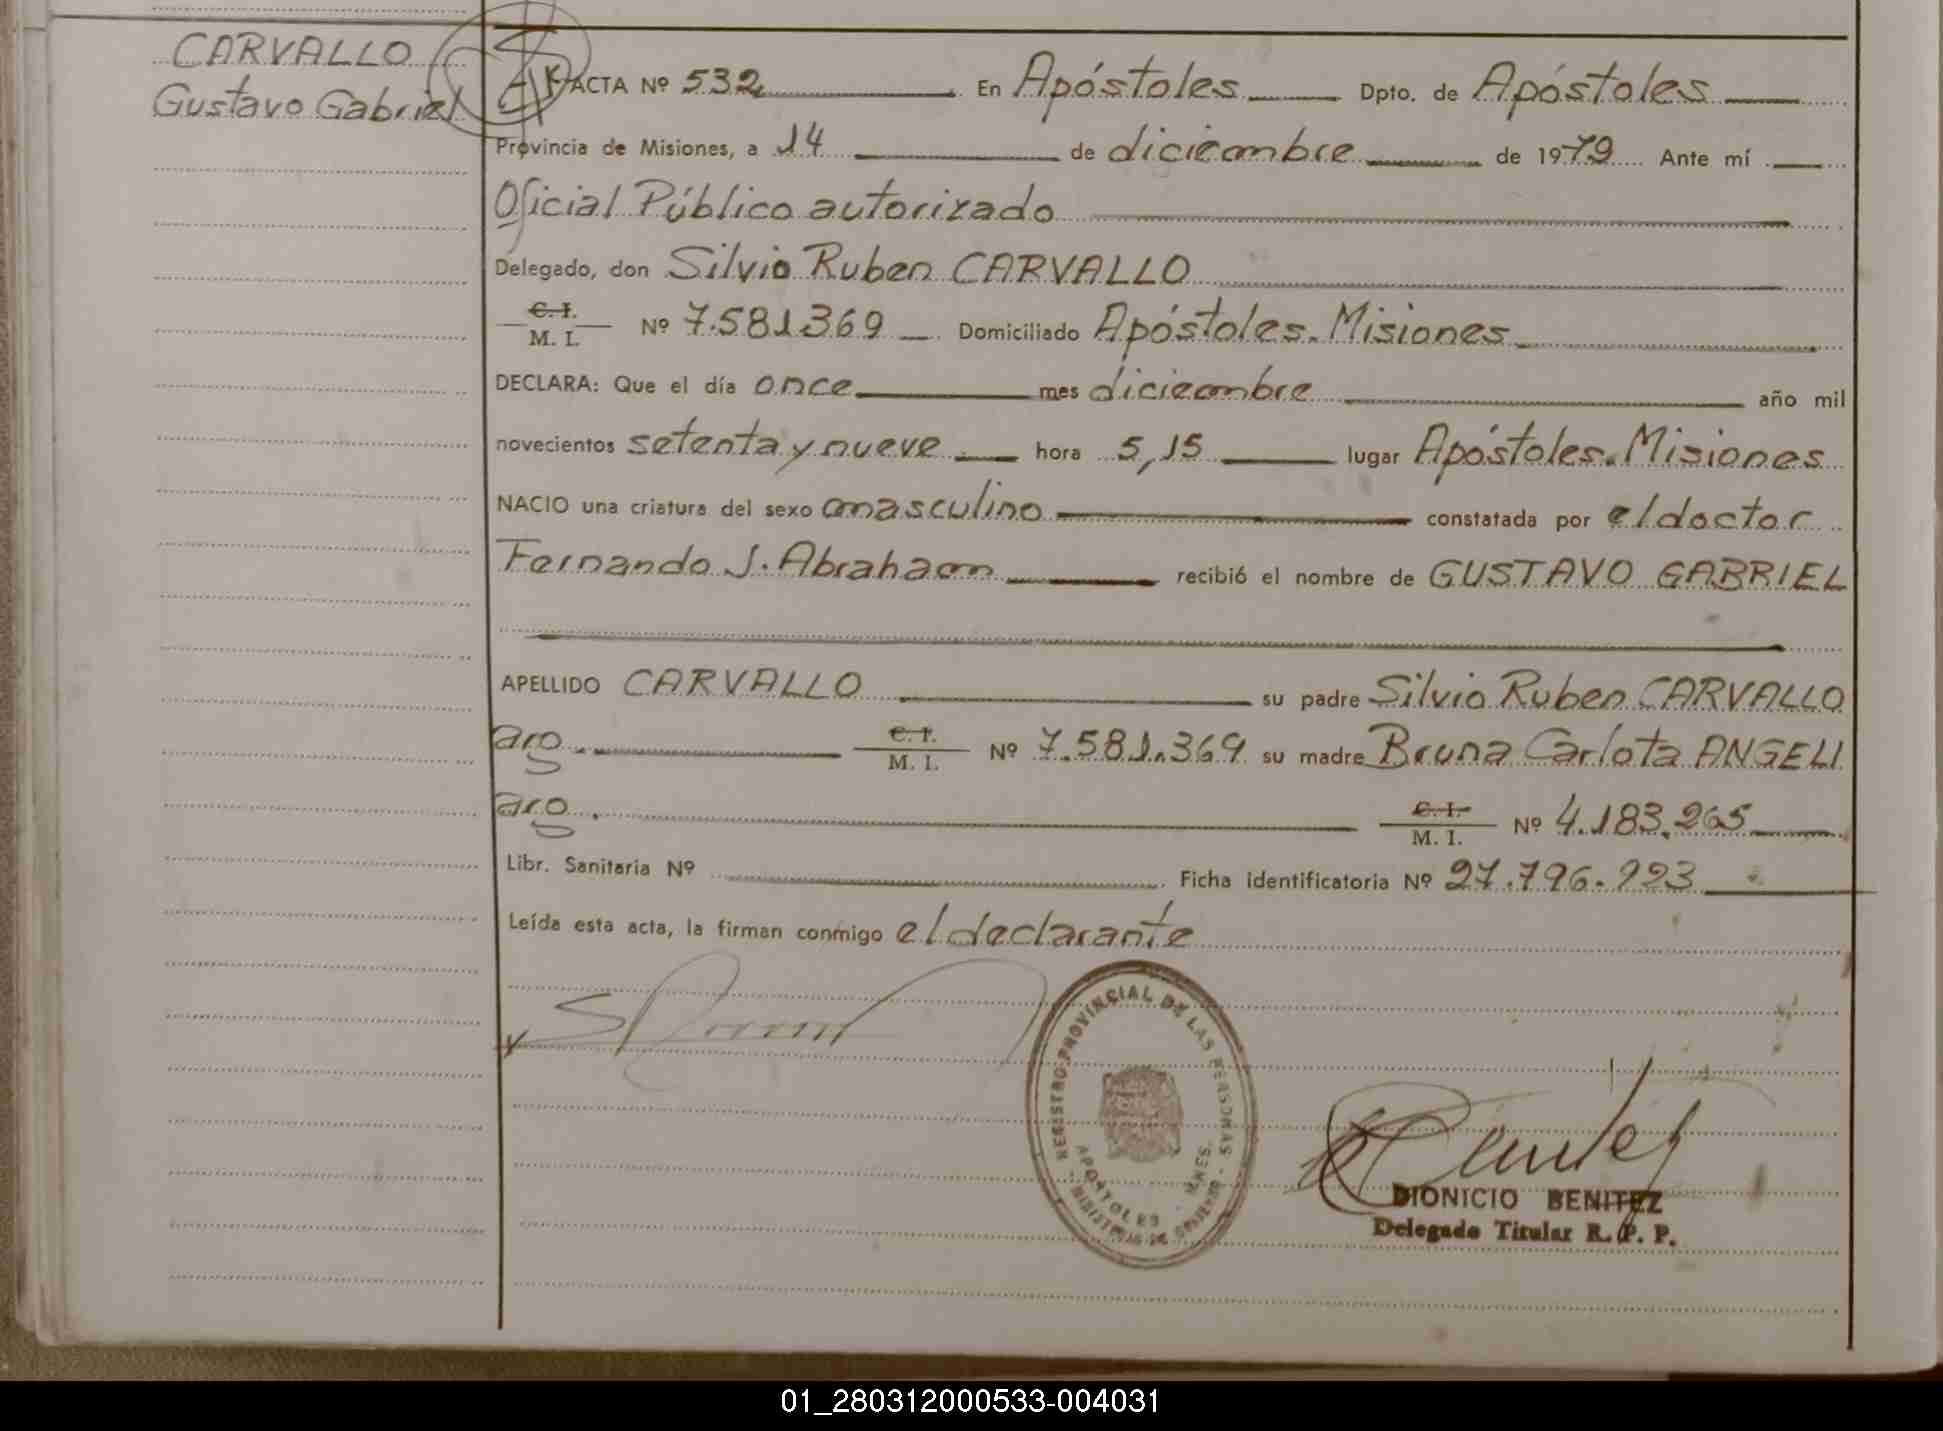 CARVALLO
Gustavo Gabriel
ACTA Nº 532 En Apóstoles Dpto. de Apóstoles
Provincia de Misiones, a 14 de diciembre de 1979 Ante mí
Oficial Público autorizado
Delegado, don Silvio Ruben CARVALLO
C. I.
M. I. Nº 7.581.369 Domiciliado Apóstoles. Misiones
DECLARA: Que el día once mes diciembre año mil
novecientos setenta y nueve hora 5,15 lugar Apóstoles. Misiones
NACIO una criatura del sexo masculino constatada por el doctor
Fernando J. Abraham recibió el nombre de GUSTAVO GABRIEL
APELLIDO CARVALLO su padre Silvio Ruben CARVALLO
arg. C. I.
M. I. Nº 7.581.369 su madre Bruna Carlota ANGELI
arg. C. I.
M. I. Nº 4.183.265
Libr. Sanitaria Nº Ficha identificatoria Nº 27.796.223
Leída esta acta, la firman conmigo el declarante
REGISTRO PROVINCIAL DE LAS PERSONAS
APOSTOLES - MNES.
MINISTERIO DE GOBIERNO
DIONICIO BENITEZ
Delegado Titular R. P. P.
01_280312000533-004031